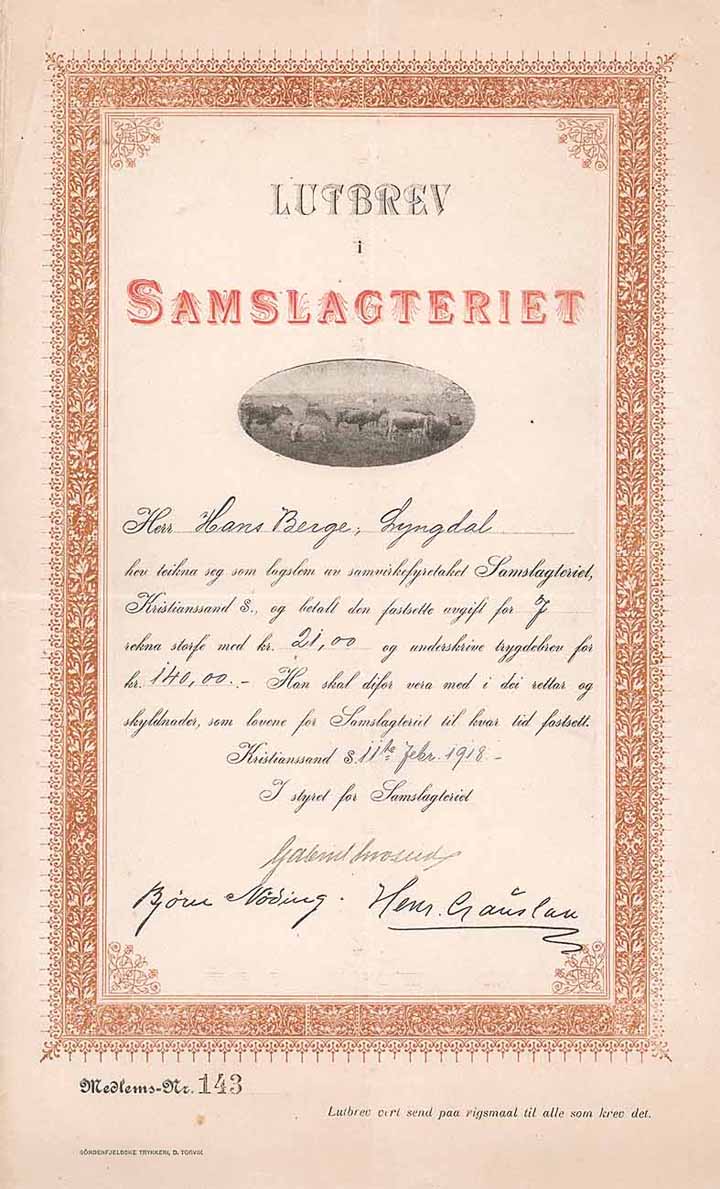 LUTBREV
i
SAMSLAGTERIET
Herr Hans Berge, Lyngdal
hev teikna seg som lagslem av samvirkefyretaket Samslagteriet,
Kristianssand S., og betalt den fastsette avgift for 7
rekna storfe med kr. 21,00 og underskrive trygdebrev for
kr. 140,00.- Han skal difor vera med i dei rettar og
skyldnader, som lovene for Samslagteriet til kvar tid fastsett.
Kristianssand S. 11te Febr. 1918.-
I styret for Samslagteriet
Gabriel
Bjørn Nöding. Henr.
Medlems-Nr. 143
Lutbrev vert send paa rigsmaal til alle som krev det.
SÖNDENFJELDSKE TRYKKERI, D. TORVIK